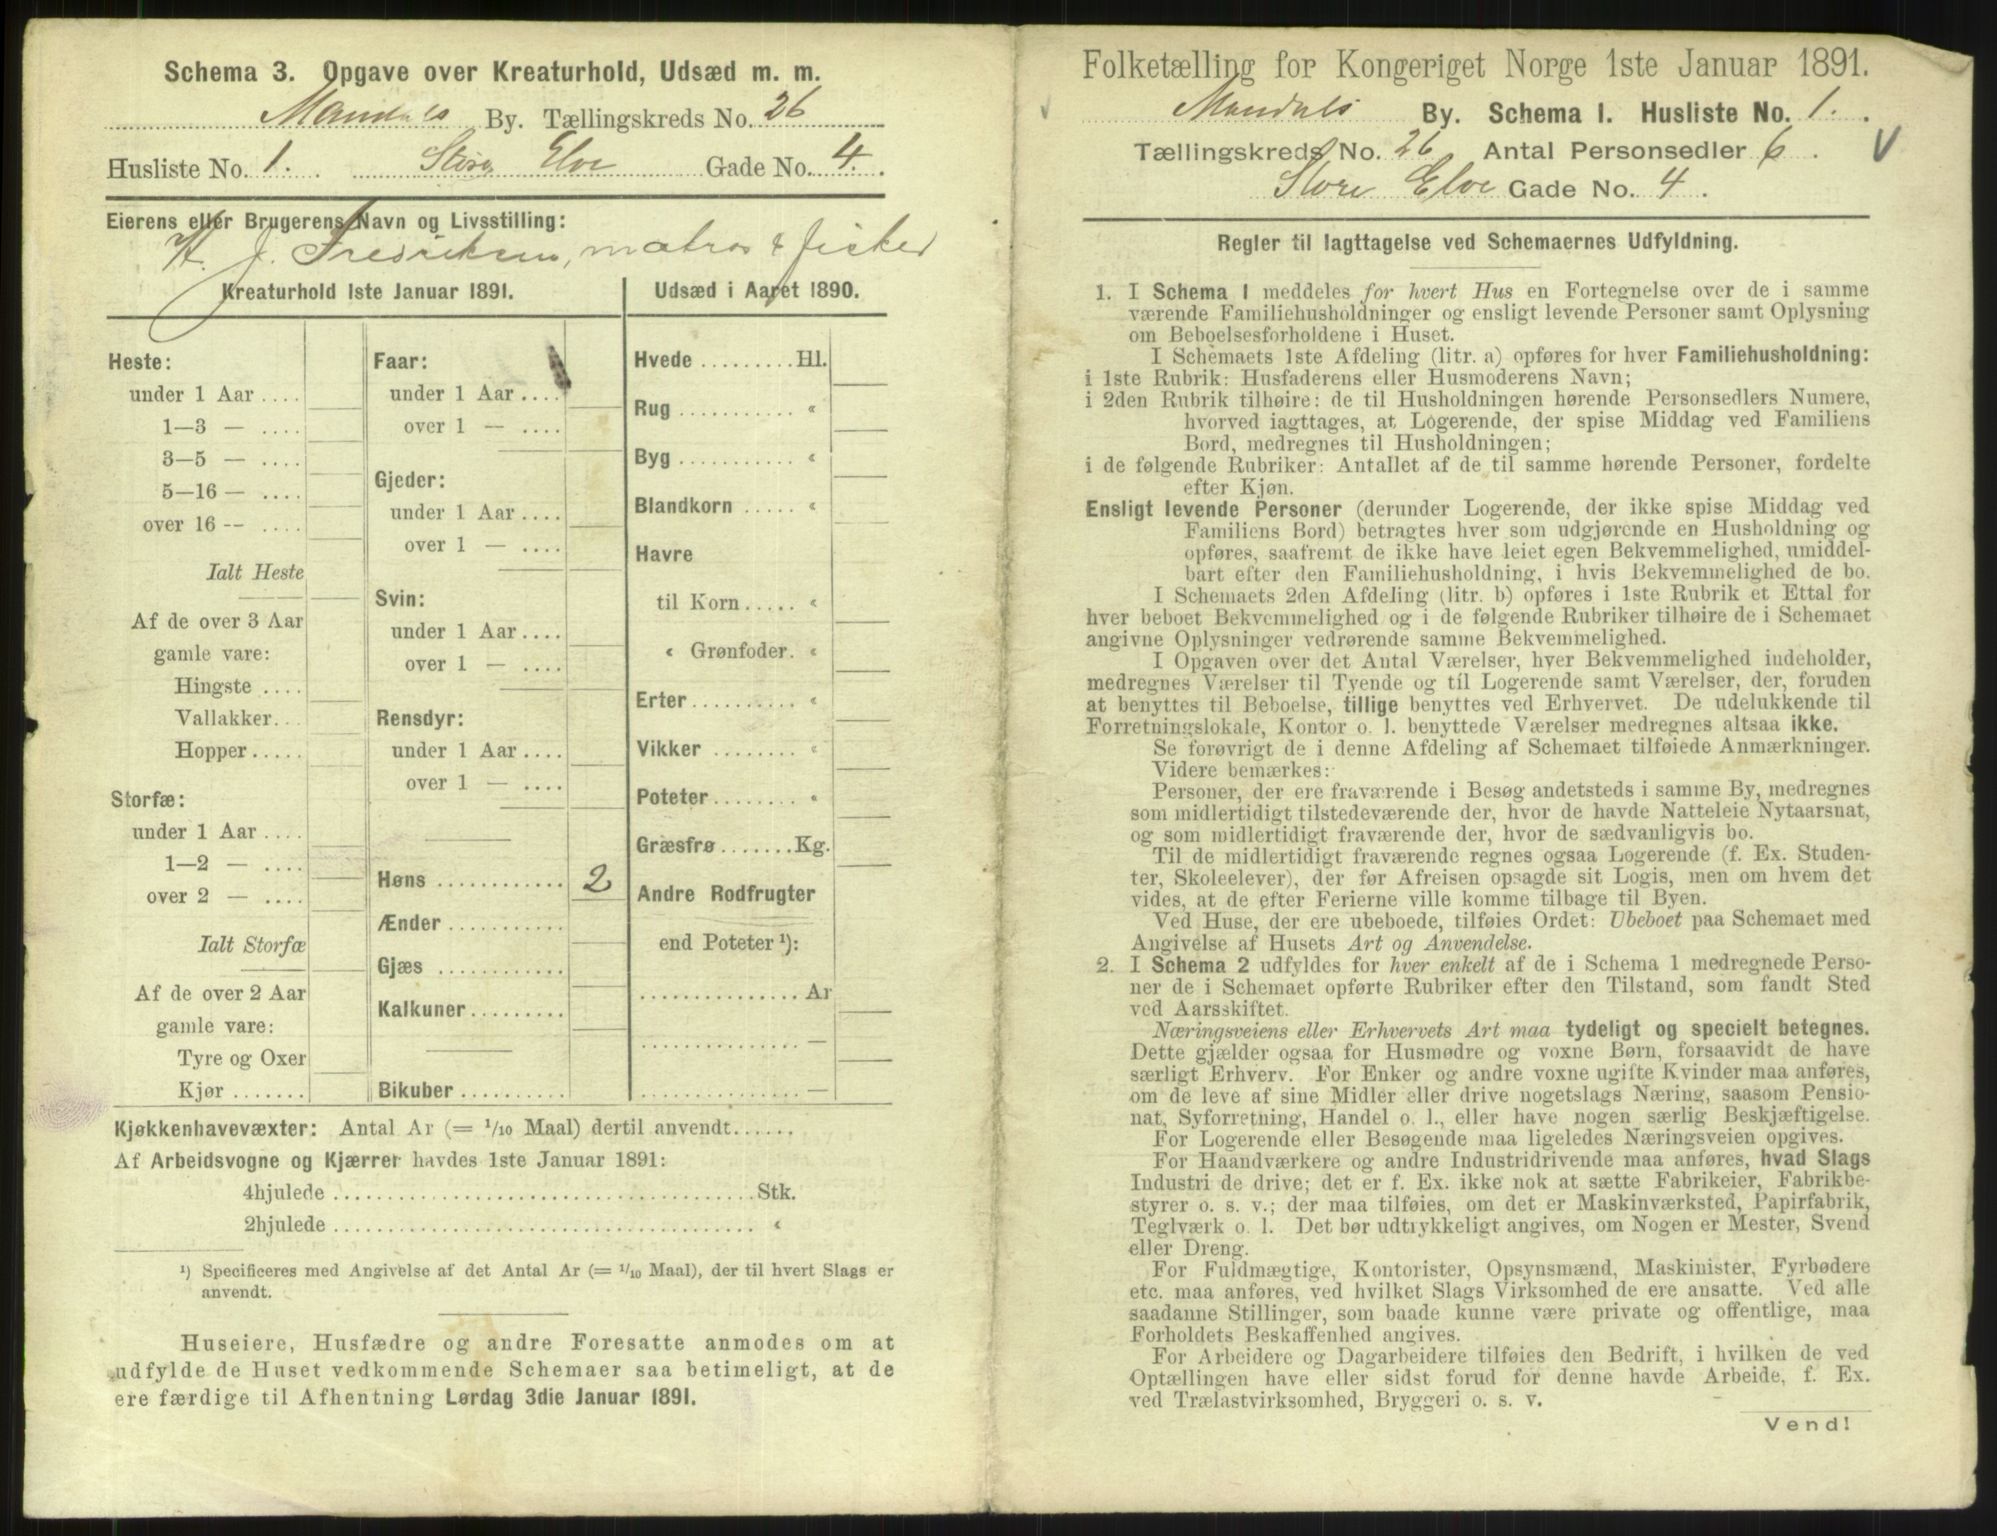 Schema 3. Opgave over Kreaturhold, Udsæd m. m.
Mandals By. Tællingskreds No. 26
Husliste No. 1. Store Elve Gade No. 4.
Eierens eller Brugerens Navn og Livsstilling:
H. J. Fredriksen, matros & fisker
Kreaturhold 1ste Januar 1891.
Heste:
under 1 Aar ....
1—3 — ....
3—5 — ....
5—16 — ....
over 16 -- ....
Ialt Heste
Af de over 3 Aar
gamle vare:
Hingste ....
Vallakker...
Hopper.....
Storfæ:
under 1 Aar ....
1—2 — ....
over 2 — ....
Ialt Storfæ
Af de over 2 Aar
gamle vare:
Tyre og Oxer
Kjør .......
Faar:
under 1 Aar ....
over 1 — ....
Gjeder:
under 1 Aar ....
over 1 — ....
Svin:
under 1 Aar ....
over 1 — ....
Rensdyr:
under 1 Aar ....
over 1 — ....
Høns ............ 2
Ænder ...........
Gjæs ............
Kalkuner.........
Bikuber ..........
Udsæd i Aaret 1890.
Hvede ......... Hl.
Rug ........... «
Byg ........... «
Blandkorn ..... «
Havre
til Korn ..... «
« Grønfoder. «
Erter .......... «
Vikker ......... «
Poteter ........ «
Græsfrø ....... Kg.
Andre Rodfrugter
end Poteter ¹):
............... Ar
............... —
............... —
Kjøkkenhavevæxter: Antal Ar (= 1/10 Maal) dertil anvendt......
Af Arbeidsvogne og Kjærrer havdes 1ste Januar 1891:
4hjulede ........................................ Stk.
2hjulede ........................................ «
¹) Specificeres med Angivelse af det Antal Ar (= 1/10 Maal), der til hvert Slags er
anvendt.
Huseiere, Husfædre og andre Foresatte anmodes om at
udfylde de Huset vedkommende Schemaer saa betimeligt, at de
ere færdige til Afhentning Lørdag 3die Januar 1891.
Folketælling for Kongeriget Norge 1ste Januar 1891.
Mandals By. Schema I. Husliste No. 1.
Tællingskreds No. 26 Antal Personsedler 6.
Store Elve Gade No. 4.
Regler til Iagttagelse ved Schemaernes Udfyldning.
1. I Schema 1 meddeles for hvert Hus en Fortegnelse over de i samme
værende Familiehusholdninger og ensligt levende Personer samt Oplysning
om Beboelsesforholdene i Huset.
I Schemaets 1ste Afdeling (litr. a) opføres for hver Familiehusholdning:
i 1ste Rubrik: Husfaderens eller Husmoderens Navn;
i 2den Rubrik tilhøire: de til Husholdningen hørende Personsedlers Numere,
hvorved iagttages, at Logerende, der spise Middag ved Familiens
Bord, medregnes til Husholdningen;
i de følgende Rubriker: Antallet af de til samme hørende Personer, fordelte
efter Kjøn.
Ensligt levende Personer (derunder Logerende, der ikke spise Middag ved
Familiens Bord) betragtes hver som udgjørende en Husholdning og
opføres, saafremt de ikke have leiet egen Bekvemmelighed, umiddel-
bart efter den Familiehusholdning, i hvis Bekvemmelighed de bo.
I Schemaets 2den Afdeling (litr. b) opføres i 1ste Rubrik et Ettal for
hver beboet Bekvemmelighed og i de følgende Rubriker tilhøire de i Schemaet
angivne Oplysninger vedrørende samme Bekvemmelighed.
I Opgaven over det Antal Værelser, hver Bekvemmelighed indeholder,
medregnes Værelser til Tyende og til Logerende samt Værelser, der, foruden
at benyttes til Beboelse, tillige benyttes ved Erhvervet. De udelukkende til
Forretningslokale, Kontor o. l. benyttede Værelser medregnes altsaa ikke.
Se forøvrigt de i denne Afdeling af Schemaet tilføiede Anmærkninger.
Videre bemærkes:
Personer, der ere fraværende i Besøg andetsteds i samme By, medregnes
som midlertidigt tilstedeværende der, hvor de havde Natteleie Nytaarsnat,
og som midlertidigt fraværende der, hvor de sædvanligvis bo.
Til de midlertidigt fraværende regnes ogsaa Logerende (f. Ex. Studen-
ter, Skoleelever), der før Afreisen opsagde sit Logis, men om hvem det
vides, at de efter Ferierne ville komme tilbage til Byen.
Ved Huse, der ere ubeboede, tilføies Ordet: Ubeboet paa Schemaet med
Angivelse af Husets Art og Anvendelse.
2. I Schema 2 udfyldes for hver enkelt af de i Schema 1 medregnede Perso-
ner de i Schemaet opførte Rubriker efter den Tilstand, som fandt Sted
ved Aarsskiftet.
Næringsveiens eller Erhvervets Art maa tydeligt og specielt betegnes.
Dette gjælder ogsaa for Husmødre og voxne Børn, forsaavidt de have
særligt Erhverv. For Enker og andre voxne ugifte Kvinder maa anføres,
om de leve af sine Midler eller drive nogetslags Næring, saasom Pensio-
nat, Syforretning, Handel o. l., eller have nogen særlig Beskjæftigelse.
For Logerende eller Besøgende maa ligeledes Næringsveien opgives.
For Haandværkere og andre Industridrivende maa anføres, hvad Slags
Industri de drive; det er f. Ex. ikke nok at sætte Fabrikeier, Fabrikbe-
styrer o. s. v.; der maa tilføies, om det er Maskinværksted, Papirfabrik,
Teglværk o. l. Det bør udtrykkeligt angives, om Nogen er Mester, Svend
eller Dreng.
For Fuldmægtige, Kontorister, Opsynsmænd, Maskinister, Fyrbødere
etc. maa anføres, ved hvilket Slags Virksomhed de ere ansatte. Ved alle
saadanne Stillinger, som baade kunne være private og offentlige, maa
Forholdets Beskaffenhed angives.
For Arbeidere og Dagarbeidere tilføies den Bedrift, i hvilken de ved
Optællingen have eller sidst forud for denne havde Arbeide, f. Ex.
ved Trælastvirksomhed, Bryggeri o. s. v.
Vend!